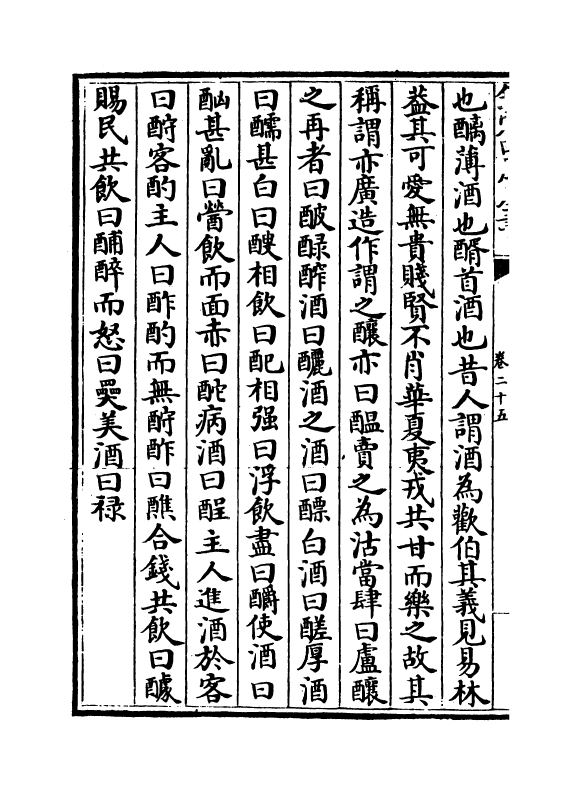 卷二十五
也醨薄酒也醑首酒也昔人謂酒為歡伯其義見易林
葢其可愛無貴賤賢不肖華夏夷戎共甘而樂之故其
稱謂亦廣造作謂之釀亦曰醖賣之為沽當肆曰盧釀
之再者曰酘醁酹酒曰釃酒之酒曰醥白酒曰醝厚酒
曰醹甚白曰醙相飲曰配相强曰浮飲盡曰釂使酒曰
酗甚亂曰醟飲而面赤曰酡病酒曰酲主人進酒於客
曰酧客酌主人曰酢酌而無酧酢曰醮合錢共飲曰醵
賜民共飲曰酺醉而怒曰奰美酒曰禄